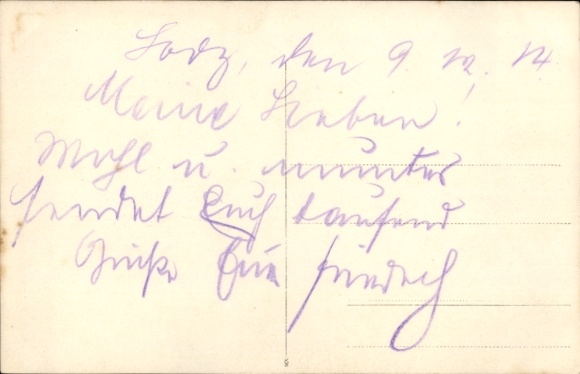 Lodz, den 9. 12. 14
Meine Lieben!
Wohl u. munter
sendet Euch tausend
Grüße Euer Friedrich